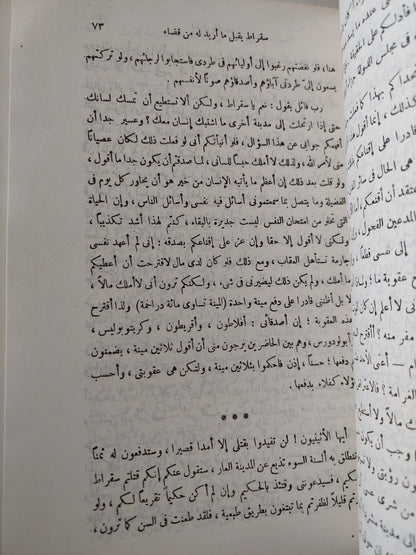 سقراط يقبل ما أريد له من قضاء ٧٣
هنا، فلو نفضتهم رغبوا إلى أوليائهم في طردى فاستجابوا لرجائهم، ولو تركتهم
يسعون إلى طردنى آباؤهم وأصدقاؤهم صونا لأنفسهم.
رب قائل يقول: نعم يا سقراط، ولكن ألا تستطيع أن تمسك لسانك
حتى إذا ارتحلت إلى مدينة أخرى ما اشتبك إنسان معك؟ وعسير جدا أن
أفهمكم جوابى عن هذا السؤال، فلو أنبأتكم أنى لو فعلت ذلك لكان عصيانا
منى لأمر الله، ولذلك لا أملك حبسا للسانى، لما صدقتم أن يكون جدا ما أقول،
ولو قلت بعد ذلك إن أعظم ما يأتيه الإنسان من خير هو أن يحاور كل يوم فى
الفضيلة وما يتصل بما سمعتمونى أسائل فيه نفسى وأسائل الناس، وإن الحياة
التى تخلو من امتحان النفس ليست جديرة بالبقاء، كنتم لهذا أشد تكذيبا،
ولكنى لا أقول إلا حقا وإن عز على إقناعكم بصدقه: إنى لم أعهد نفسى
جارمة تستأهل العقاب، ومع ذلك فلو كان لدى مال لاقترحت أن أعطيكم
ما أملك، ولم يكن ذلك ليضيرنى فى شىء. ولكنكم ترون أنى لا أملك مالا،
لا بل أظننى قادرا على دفع مينة واحدة (المينة تساوى مائة دراخمة) ولذا أقترح
هذه العقوبة؛ إن أصدقائى: أفلاطون، وأقريطون، وكريتوبوليس،
أبولودورس، وهم بين الحاضرين يرجون منى أن أقول ثلاثين مينة، يضمنون
دفعها؛ حسنا، إذن فاحكموا بثلاثين مينة، ولتكن هى عقوبتى، وأحسب
ؤلاء كفلاء بدفعها.
* * *
أيها الأثينيون! لن تفيدوا بقتلى إلا أمدا قصيرا، وستدفعون له ثمنا
تنطلق به ألسنة السوء تذيع عن المدينة العار، ستقول عنكم إنكم قتلتم سقراط
كيم، فسيدعوننى وقتئذ بالحكيم وإن لم أكن حكيما تقريعا لكم، ولو
تم قليلا لظفرتم بما تبتغون بطريق طبيعية، فلقد طعنت فى السن كما ترون،